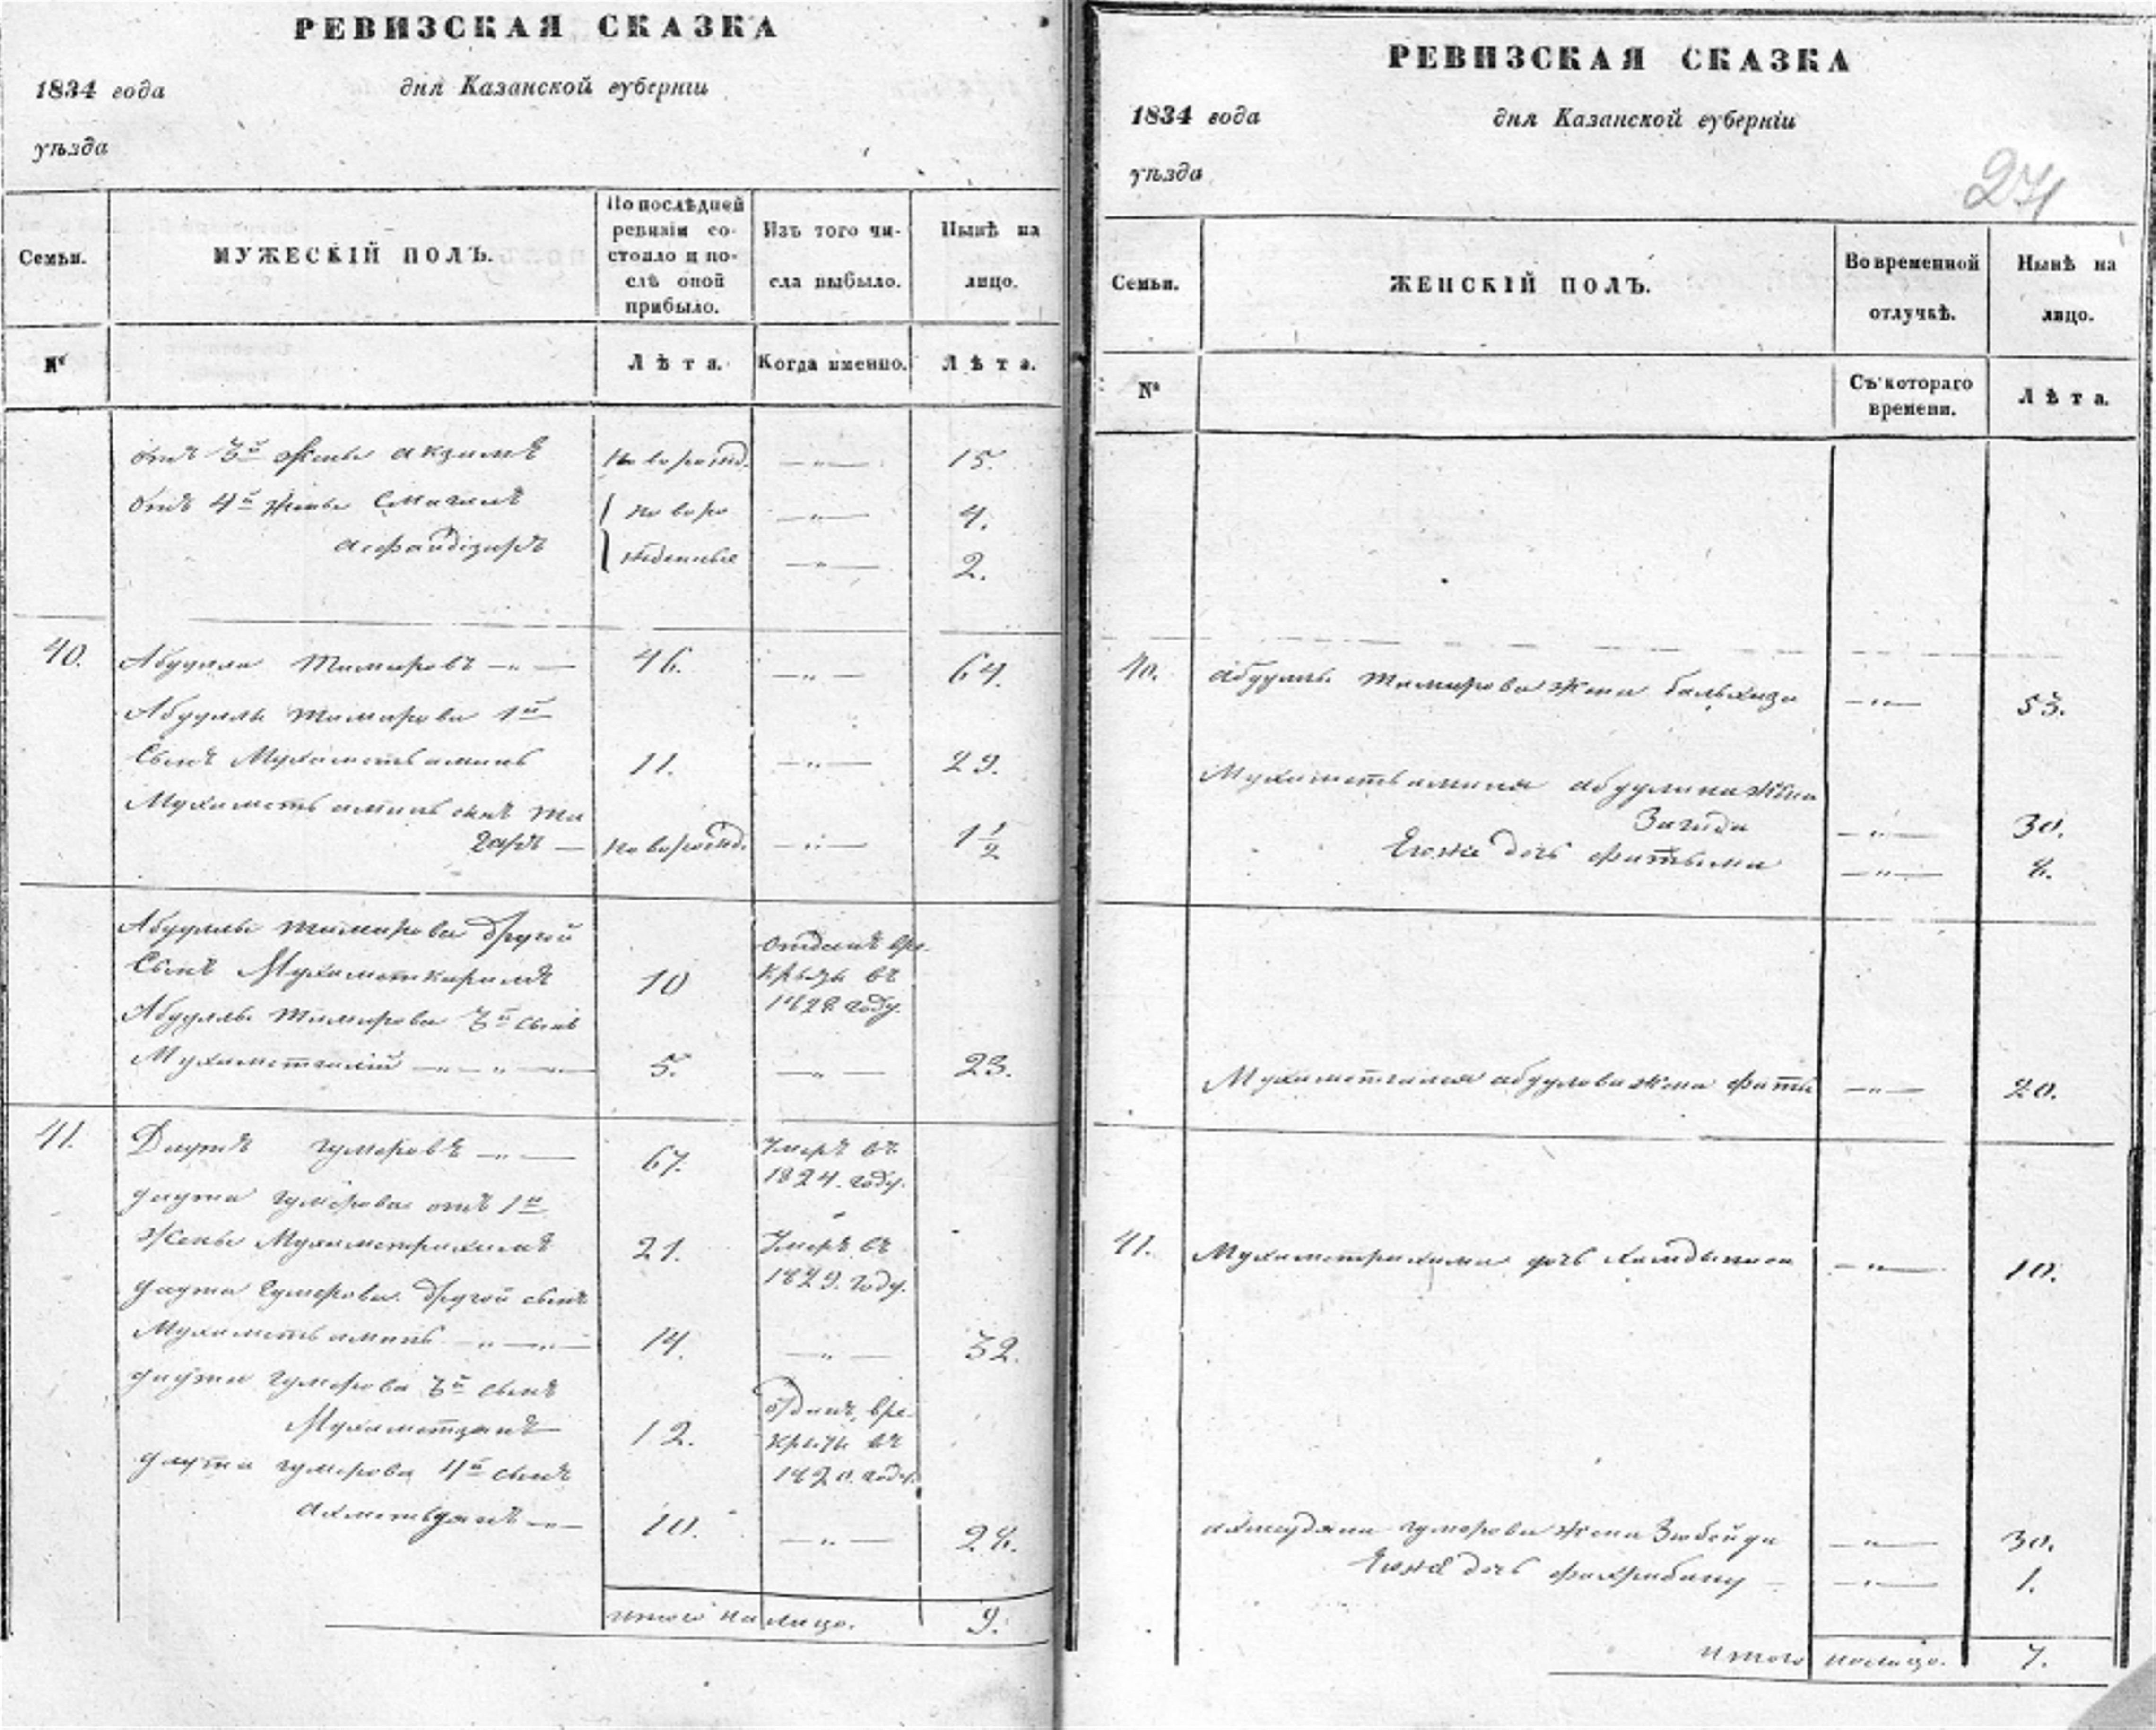 РЕВИЗСКАЯ СКАЗКА
1834 года
дня Казанской губерніи
уѣзда
Семьи.
МУЖЕСКІЙ ПОЛЪ.
По послѣдней
ревизіи со-
стояло и по-
слѣ оной
прибыло.
Изъ того чи-
сла выбыло.
Нынѣ на
лицо.
№
Лѣта.
Когда именно.
Лѣта.
отъ 3й жены Акзямъ новорожд. —„— 15.
отъ 4й жены Смагилъ новоро —„— 4.
Асфандіяръ жденные —„— 2.
40. Абдулла Темировъ —„— 46. —„— 64.
Абдуллы Темирова 1й
сынъ Мухаметьаминь 11. —„— 29.
Мухаметьаминь сынъ
новорожд. —„— 1 1/2
Абдуллы Темирова другой
сынъ Мухаметкаримъ 10
отданъ въ ре-
круты въ
1828. году.
Абдуллы Темирова 3й сынъ
Мухаметгалій —„—„— 5. —„— 23.
41. Даутъ Гумеровъ —„— 67.
Умеръ въ
1824. году.
Даута Гумерова отъ 1й
жены Мухаметрахимъ 21.
Умеръ въ
1829. году.
Даута Гумерова другой сынъ
Мухаметьаминь —„—„— 14. —„— 32.
Даута Гумерова 3й сынъ
Мухаметзянъ 12.
отданъ въ ре-
круты въ
1820. году.
Даута Гумерова 4й сынъ
Ахметьзянъ —„— 10. —„— 28.
итого на лицо. 9.
РЕВИЗСКАЯ СКАЗКА
1834 года
дня Казанской губерніи
уѣзда
27
Семьи.
ЖЕНСКІЙ ПОЛЪ.
Во временной
отлучкѣ.
Нынѣ на
лицо.
№
Съ котораго
времени.
Лѣта.
40. Абдуллы Темирова жена Бальхиза —„— 53.
Мухаметьаминя Абдулина жена
Загида —„— 30.
Егожа дочь Фатьыма —„— 8.
Мухаметгалея Абдулова жена —„— 20.
41. Мухаметрахима дочь —„— 10.
Гумерова жена Зюбейда —„— 30.
Егожа дочь Фахрибану —„— 1.
итого налицо. 7.